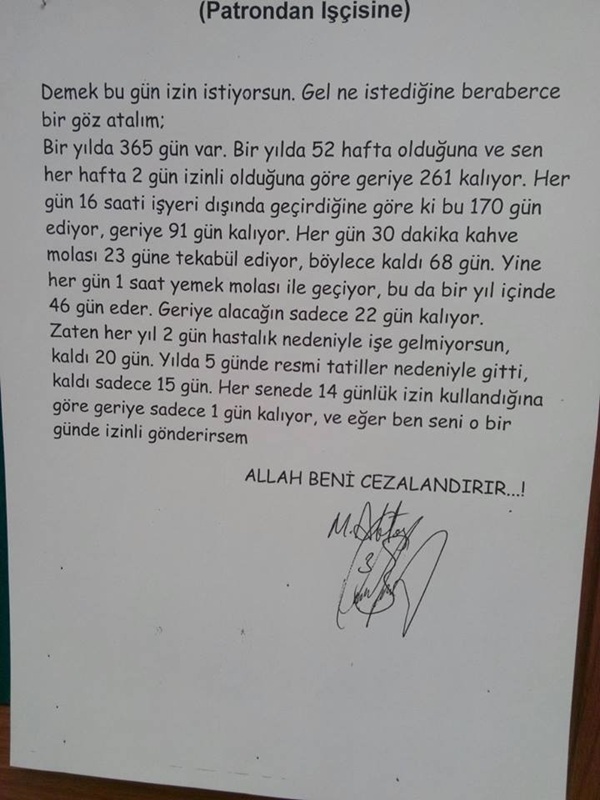 (Patrondan İşçisine)
Demek bu gün izin istiyorsun. Gel ne istediğine beraberce
bir göz atalım;
Bir yılda 365 gün var. Bir yılda 52 hafta olduğuna ve sen
her hafta 2 gün izinli olduğuna göre geriye 261 kalıyor. Her
gün 16 saati işyeri dışında geçirdiğine göre ki bu 170 gün
ediyor, geriye 91 gün kalıyor. Her gün 30 dakika kahve
molası 23 güne tekabül ediyor, böylece kaldı 68 gün. Yine
her gün 1 saat yemek molası ile geçiyor, bu da bir yıl içinde
46 gün eder. Geriye alacağın sadece 22 gün kalıyor.
Zaten her yıl 2 gün hastalık nedeniyle işe gelmiyorsun,
kaldı 20 gün. Yılda 5 günde resmi tatiller nedeniyle gitti,
kaldı sadece 15 gün. Her senede 14 günlük izin kullandığına
göre geriye sadece 1 gün kalıyor, ve eğer ben seni o bir
günde izinli gönderirsem
ALLAH BENİ CEZALANDIRIR...!